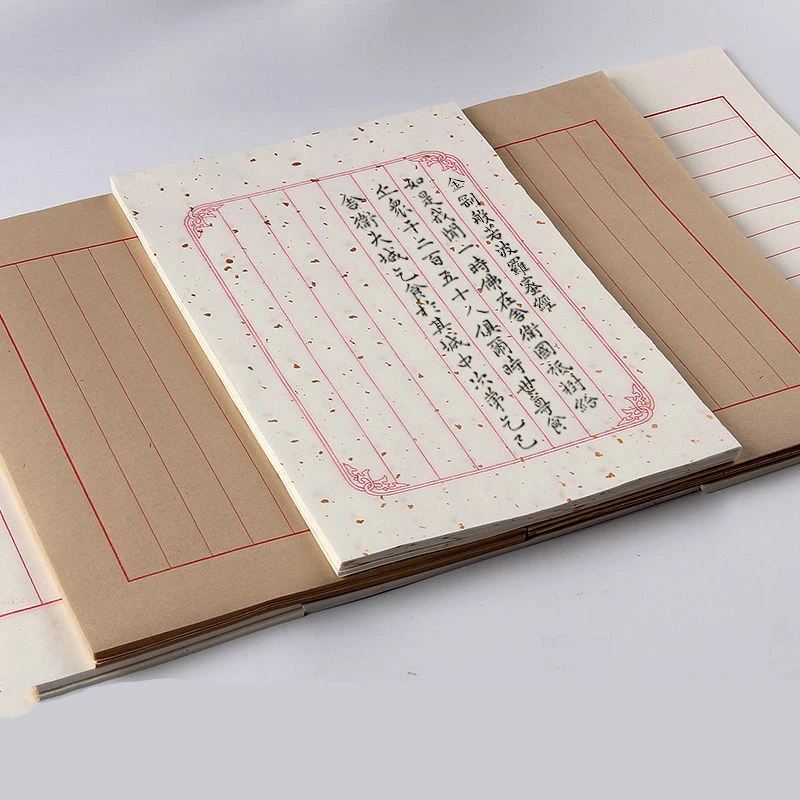 金剛般若波羅蜜經
如是我聞一時佛在舍衛國祇樹給
丘衆千二百五十人俱爾時世尊食
舍衛大城乞食於其城中次第乞已